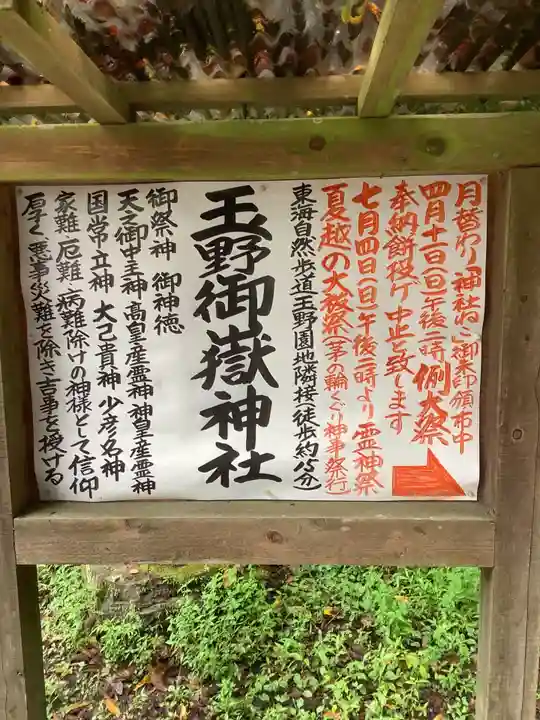 月替わり「神社ねこ」御朱印頒布中
四月十一日(日)午後二時 例大祭
奉納餅投げ 中止と致します
七月四日(日)午後二時より 霊神祭
夏越の大祓祭(茅の輪くぐり神事祭行)
東海自然歩道玉野園地隣接(徒歩約15分)
玉野御嶽神社
御祭神 御神徳
天之御中主神 高皇産霊神 神皇産霊神
国常立神 大己貴神 少彦名神
家難厄難病難除けの神様として信仰
厚く悪事災難を除き吉事を授ける